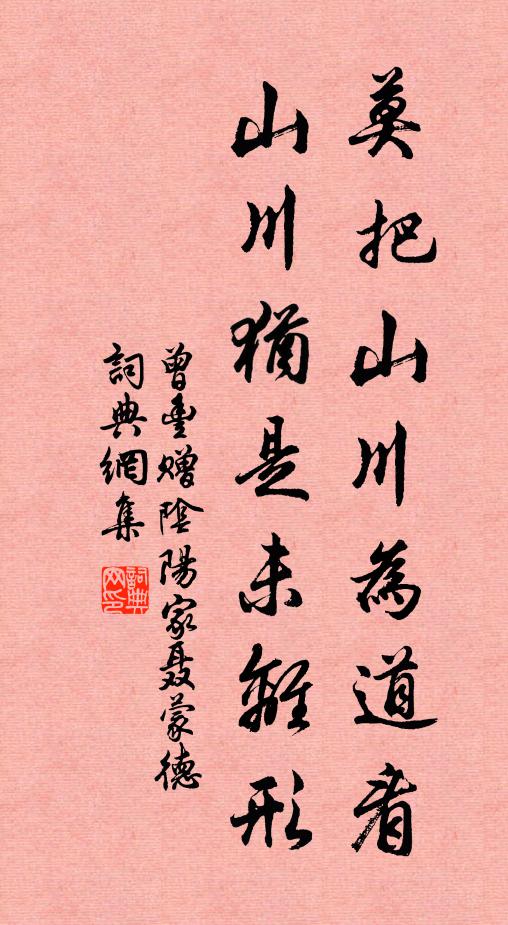 莫把山川為道看
山川猶是未離形
曾豐贈陰陽家聶蒙德
詞典網集
詞典网印